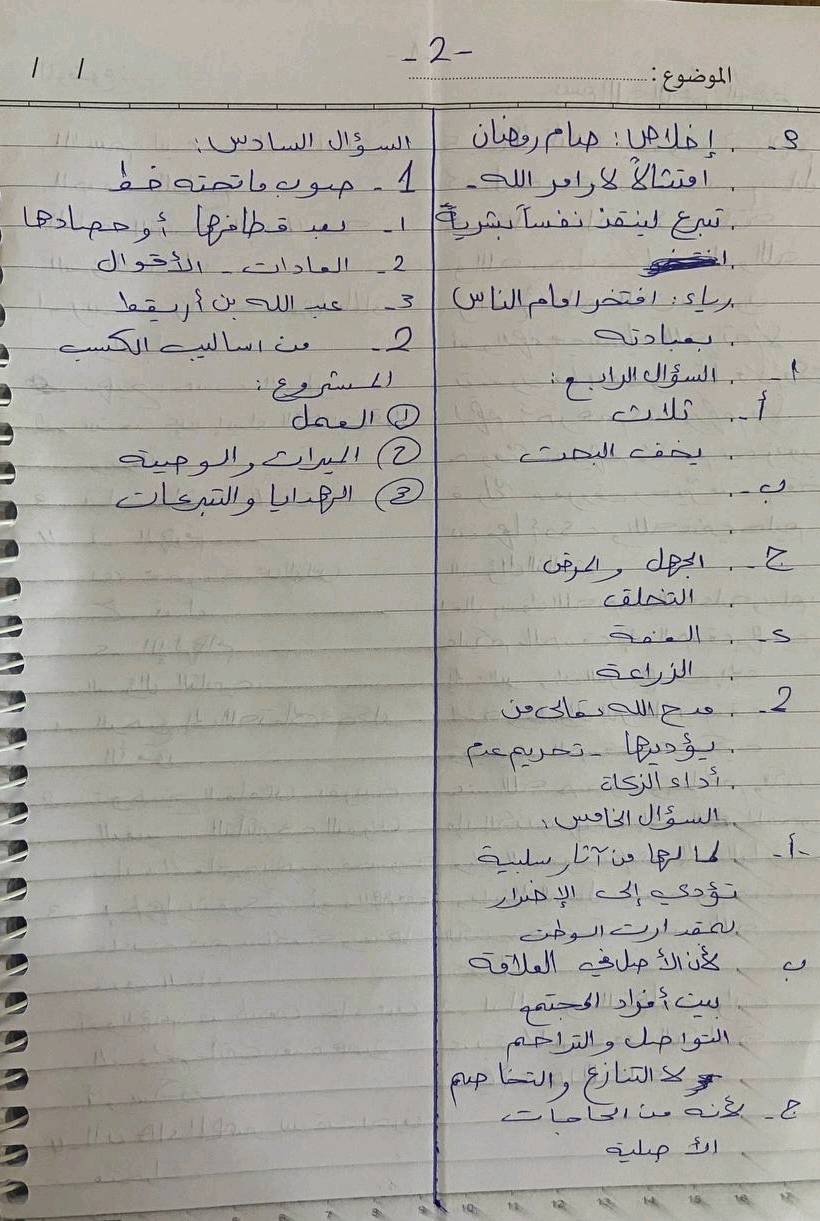 -2-
الموضوع : / /
9- إخلاص : صيام رمضان
امتثالاً لاوامر الله -
تبرع لينقذ نفساً بشرية
رياء : افتخر امام الناس
بعبادته
1- السؤال الرابع :
أ- ثلاث
يخف البحث
ب-
ج- الجهل والمرض
التخلف
د- العقمة
الزراعة
2- مدح الله تعالى من
يؤديها - تحريم عدم
أداء الزكاة
السؤال الخامس :
أ- لما لها من آثار سلبية
تؤدي إلى الإضرار
بمقدارت الوطن
ب لأن الأصل في العلاقة
بين أفراد المجتمع
التواصل والتراحم
لا التنازع والتخاصم
ج- لأنه من الحاجات
الأصلية
السؤال السادس :
1- صوب ما تحته خط
1- بعد قطافها أو حصادها
2- العادات - الأقوال
3- عبد الله بن أريقط
2- من اساليب الكسب
المشروع :
① العمل
② الميراث والوصية
③ الهدايا والتبرعات